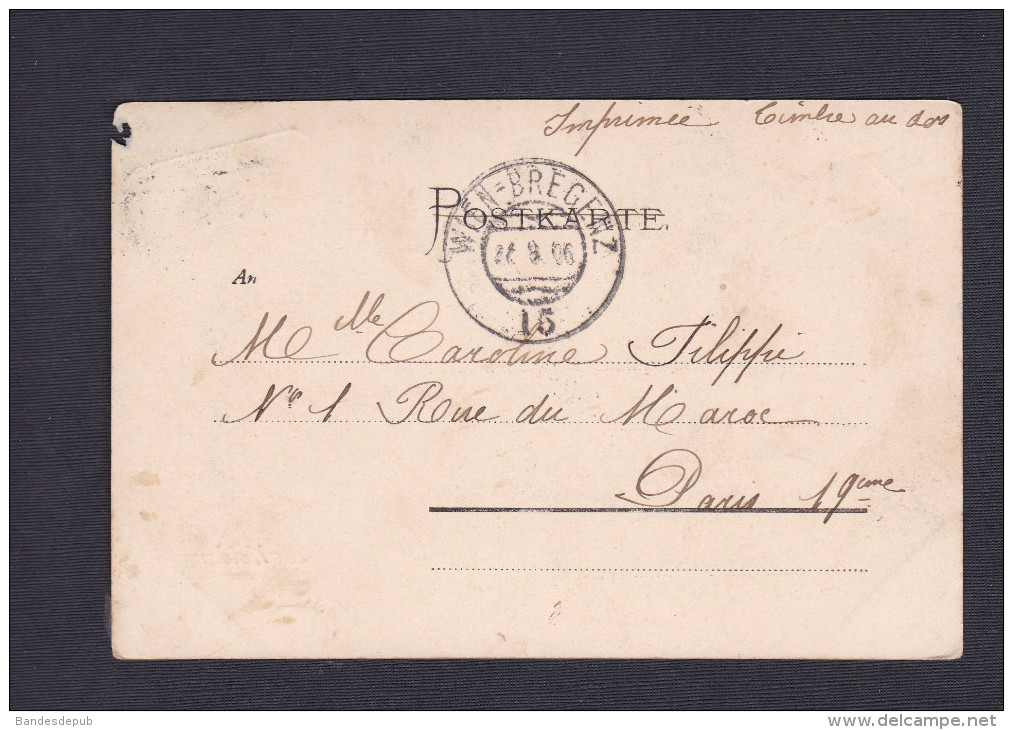 Imprimée Timbre au dos
WIEN-BREGENZ
POSTKARTE.
8. 06
15
An
Mlle Caroline Filippi
No 1 Rue du Maroc
Paris 19eme
Bandesdepub
delcampe.net